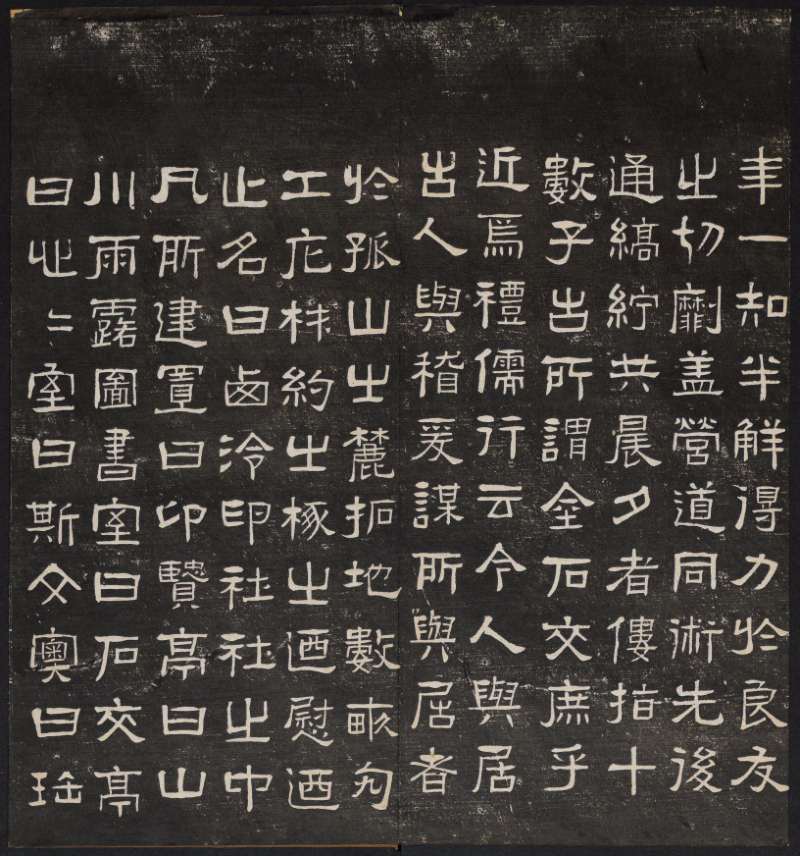 年一知半觧得力於良友
之切劘盖營道同術先後
通縞紵共晨夕者僂指十
數子古所謂金石交庶乎
近焉禮儒行云今人與居
古人與稽爰謀所與居者
於孤山之麓拓地數畝勼
工庀材約之椓之迺慰迺
止名曰西泠印社社之中
凡所建置曰卬賢亭曰山
川雨露圖書室曰石交亭
曰心〻室曰斯文奧曰珤